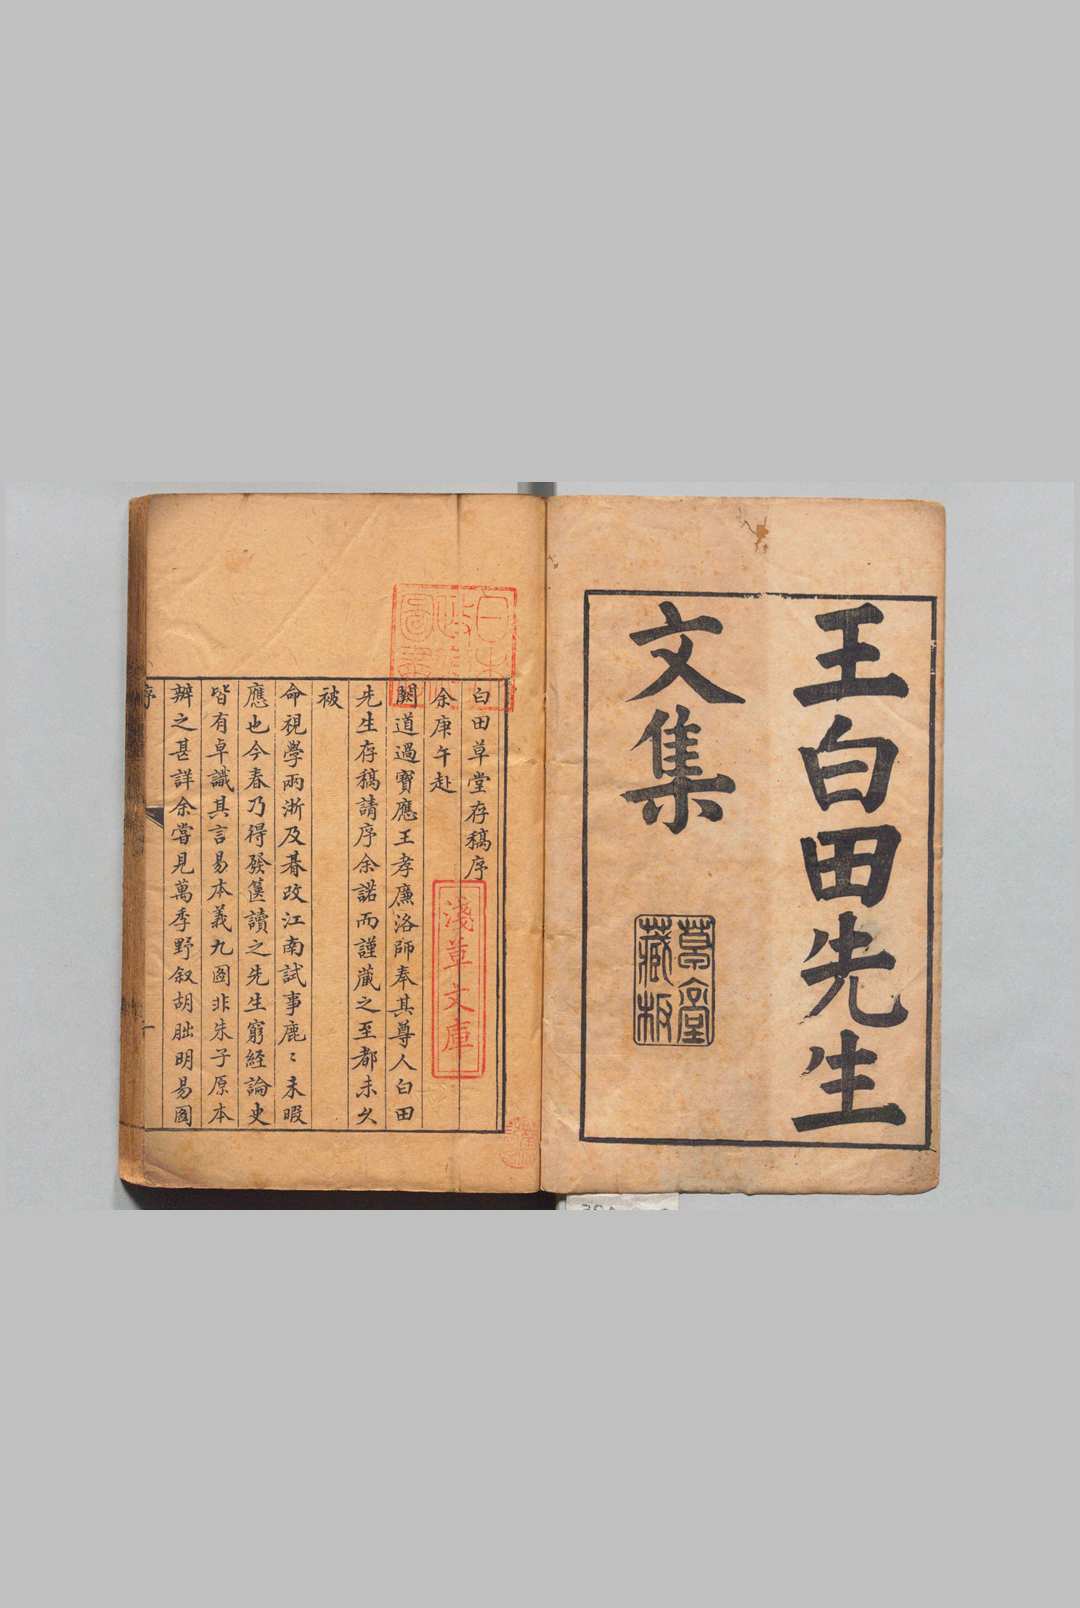 王白田先生
文集
藏板
白田草堂存稿序
余庚午赴
闕道過寶應王孝廉洛師奉其尊人白田
先生存稿請序余諾而謹藏之至都未久
被
命視學兩浙及朞改江南試事鹿〻未暇
應也今春乃得發篋讀之先生窮經論史
皆有卓識其言易本義九圖非朱子原本
辨之甚詳余嘗見萬季野叙胡朏明易圖
序
淺草文庫
日本
政府
圖書